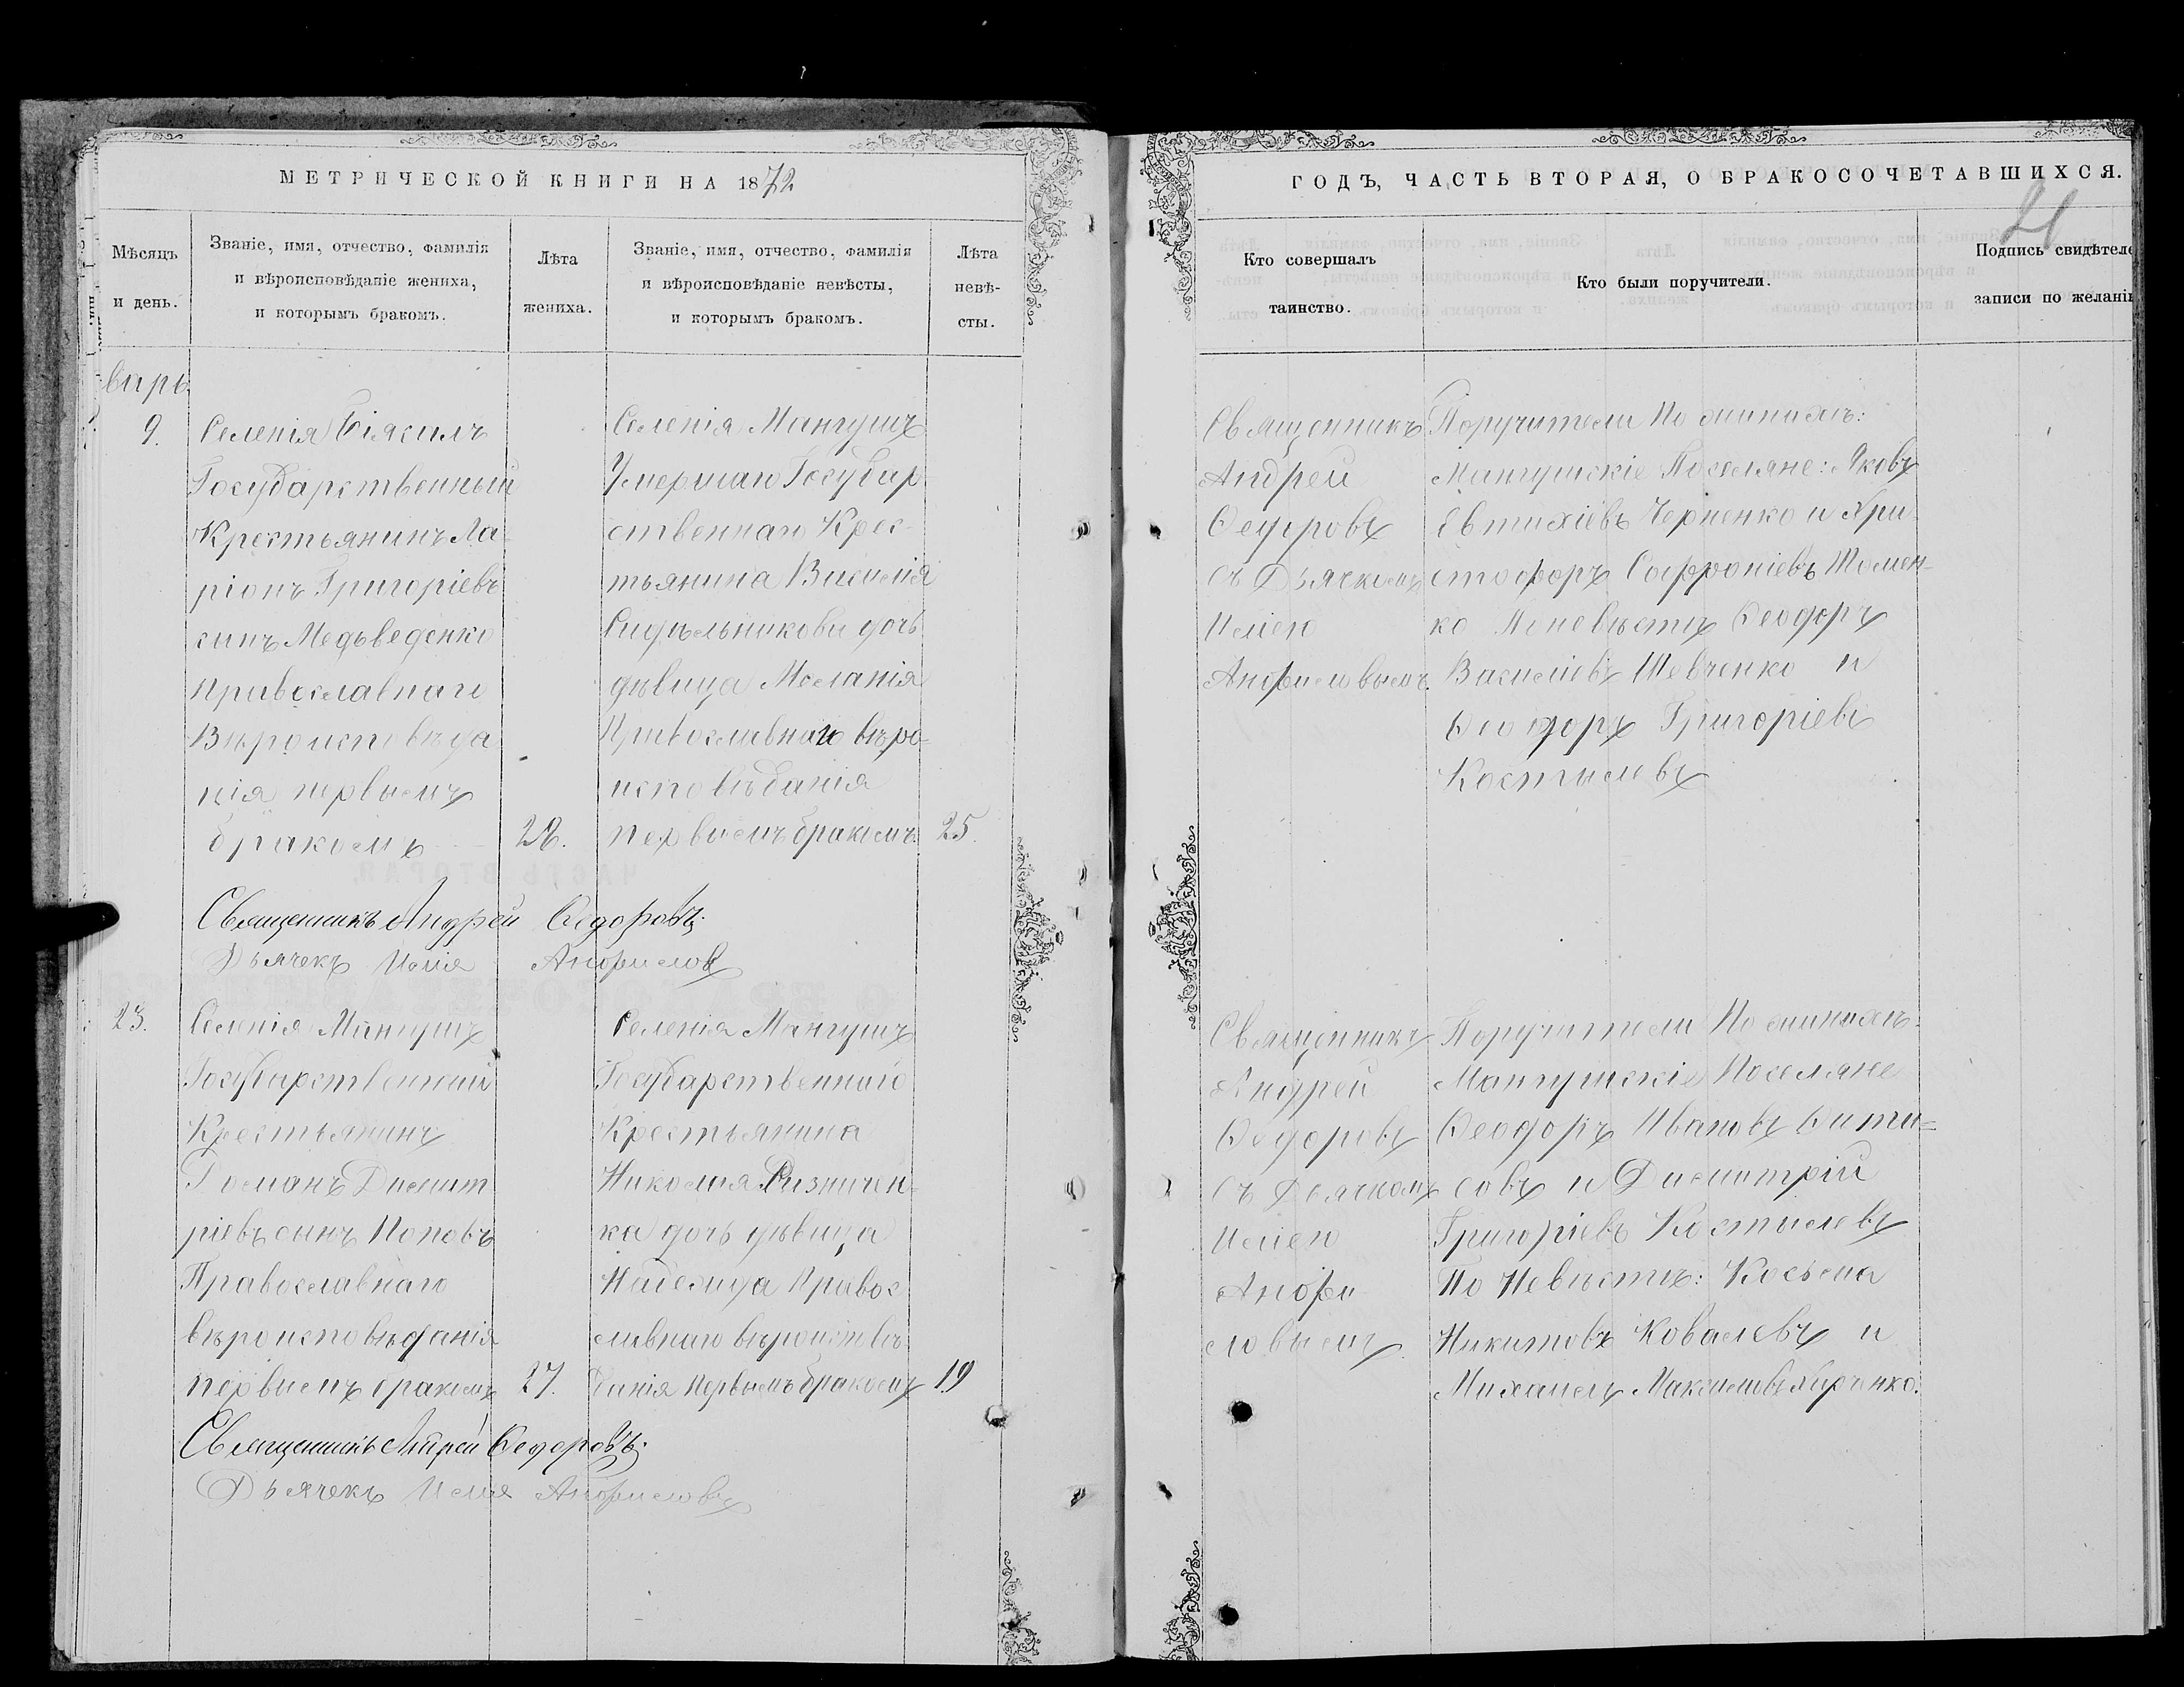 МЕТРИЧЕСКОЙ КНИГИ НА 1872
Мѣсяцъ
и день.
Званіе, имя, отчество, фамилія
и вѣроисповѣданіе жениха,
и которымъ бракомъ.
Лѣта
жениха.
Званіе, имя, отчество, фамилія
и вѣроисповѣданіе невѣсты,
и которымъ бракомъ.
Лѣта
невѣ-
сты.
варь
9.
Селенія Біясалъ
Государственный
Крестьянинъ Ла-
ріонъ Григоріевъ
сынъ Медьведенко
Православнаго
Вѣроисповѣда
нія первымъ
бракомъ
28.
Селенія Мангушъ
Умершаго Государ
ственнаго Крес-
тьянина Василія
Сидѣльникова дочь
дѣвица Меланія
Православнаго вѣро-
исповѣданія
первымъ бракомъ
25.
Священникъ Андрей Ѳедоровъ.
Дьячекъ Илія
23.
Селенія Мангушъ
Государственный
Крестьянинъ
Романъ Димит
ріевъ сынъ Поповъ
Православнаго
вѣроисповѣданія
первымъ бракомъ
27.
Селенія Мангушъ
Государственнаго
Крестьянина
Николая Ризничен-
ка дочь дѣвица
Надежда Правос
лавнаго вѣроисповѣ
данія Первымъ бракомъ
19
Священникъ Андрей Ѳедоровъ.
Дьячекъ Илія
ГОДЪ, ЧАСТЬ ВТОРАЯ, О БРАКОСОЧЕТАВШИХСЯ.
21
Кто совершалъ
таинство.
Кто были поручители.
Подпись свидѣтеле
записи по желані
Священникъ
Андрей
Ѳедоровъ
съ Дьячкомъ
Иліею
Поручители По женихѣ:
Мангушскіе Поселяне: Яковъ
Евтихіевъ Черненко и Хри
стофоръ Софроніевъ Шомен-
ко По невѣстѣ Ѳеодоръ
Василіевъ Шевченко и
Ѳеодоръ Григоріевъ
Костылевъ
Священникъ
Андрей
Ѳедоровъ
съ Дьячкомъ
Иліею
Поручители По женихѣ:
Мангушскіе Поселяне
Ѳеодоръ Ивановъ Ѳити-
совъ и Димитрій
Григоріевъ Костылевъ
По Невѣстѣ: Косьма
Никитовъ Ковалевъ и
Михаилъ Максимовъ